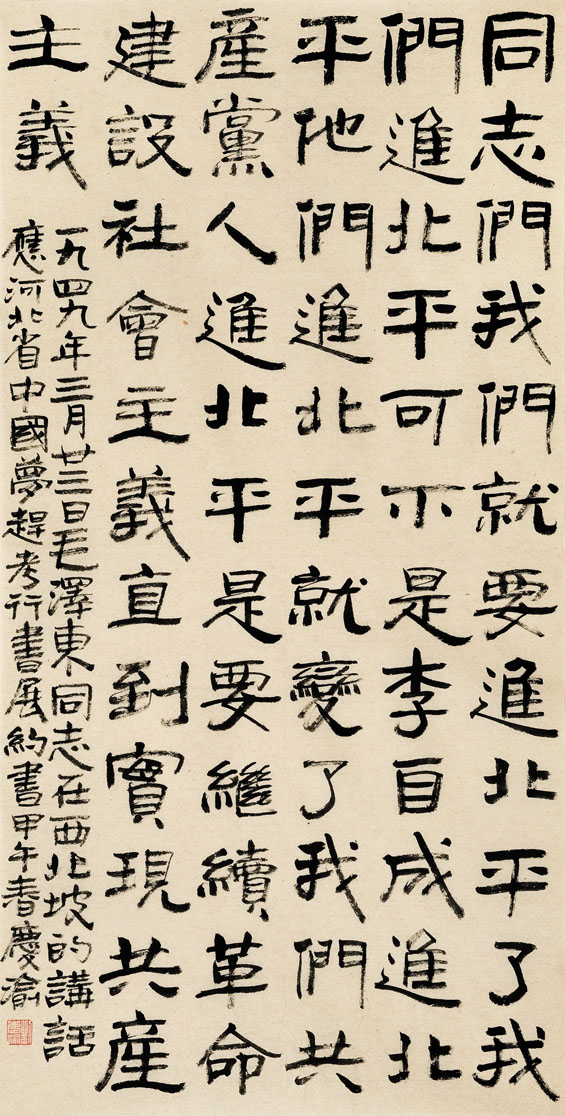 同志們我們就要進北平了我
們進北平可不是李自成進北
平他們進北平就變了我們共
産黨人進北平是要繼續革命
建設社會主義直到實現共産
主義
一九四九年三月廿三日毛澤東同志在西北坡的講話
應河北省中國夢趕考行書展約書甲午春慶渝